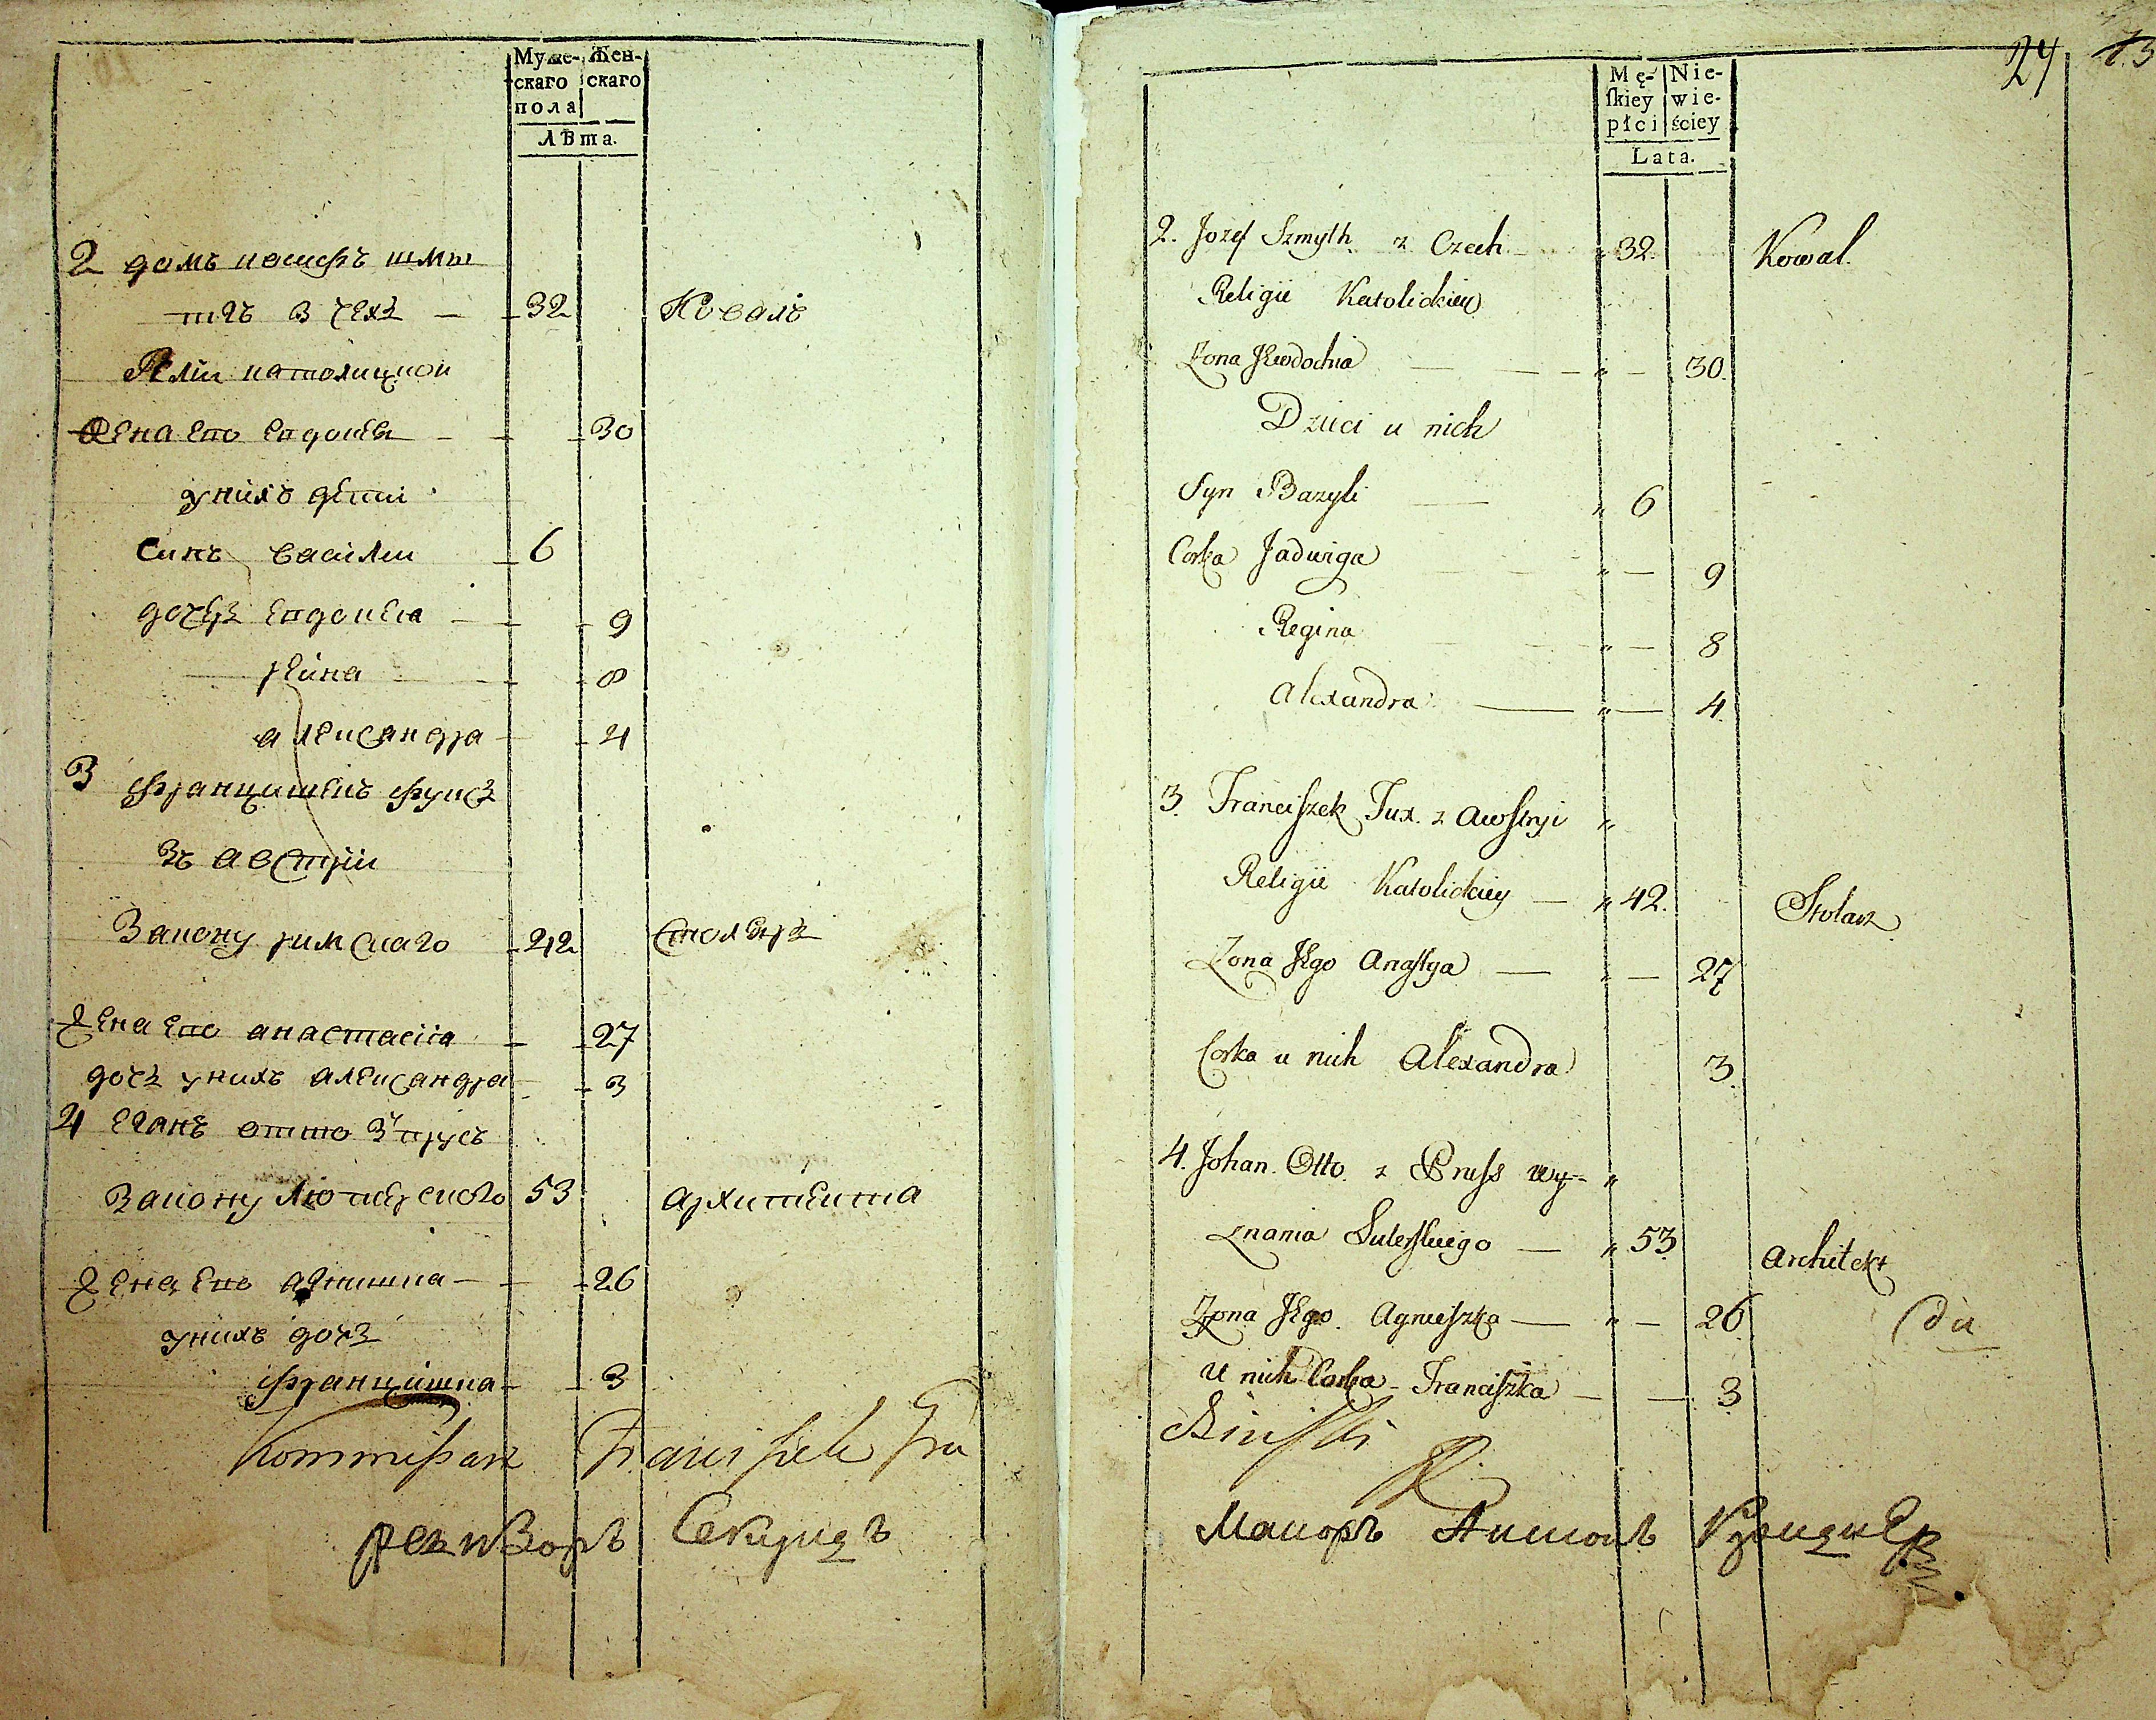 Муже-
скаго
пола
Жен-
скаго
лѣта.
2 домъ иосифъ шмы
тъ з чехъ 32 Коваль
Релии католицкои
Жена его евдокея 30
у нихъ дети
Синъ василии 6
дочерь евдокея 9
реина 8
александра 4
3 францишекъ фуксъ
зъ австрии
закону римскаго 42 столяръ
Жена его анастасия 27
дочь у нихъ александра 3
4 еганъ отто з прусъ
закону лютерского 53 архитекта
Жена его агнишка 26
у нихъ дочь
францишка 3
Kommissarz Franciszek Gra
Ревизоръ Секунд
24
Mę-
ſkiey
płci
Nie-
wie-
ściey
Lata.
2. Jozef Szmyth z Czech 32. Kowal.
Religii Katolickiey
Zona Jewdochia 30.
Dzieci u nich
Syn Bazyli 6
Corka Jadwiga 9
Regina 8
Alexandra 4.
3. Franciszek Fux. z Awstryi
Religii Katolickiey 42. Stolarz
Zona Jego Anastya 27
Corka u nich Alexandra 3.
4. Johan. Otto. z Pruss wy-
znania Luterskiego 53. Architekt
Zona Jego. Agnieszka 26
U nich Corka Franciszka 3.
Маиоръ Антонъ